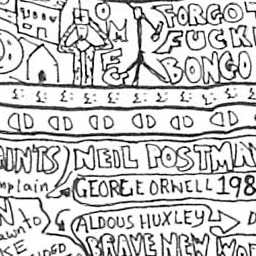 FORGOT
FUCKI
BONGO
AINTS
mplain
NEIL POSTMAN
GEORGE ORWELL 198
N to
awn to
KE
ALDOUS HUXLEY
BRAVE NEW WOR